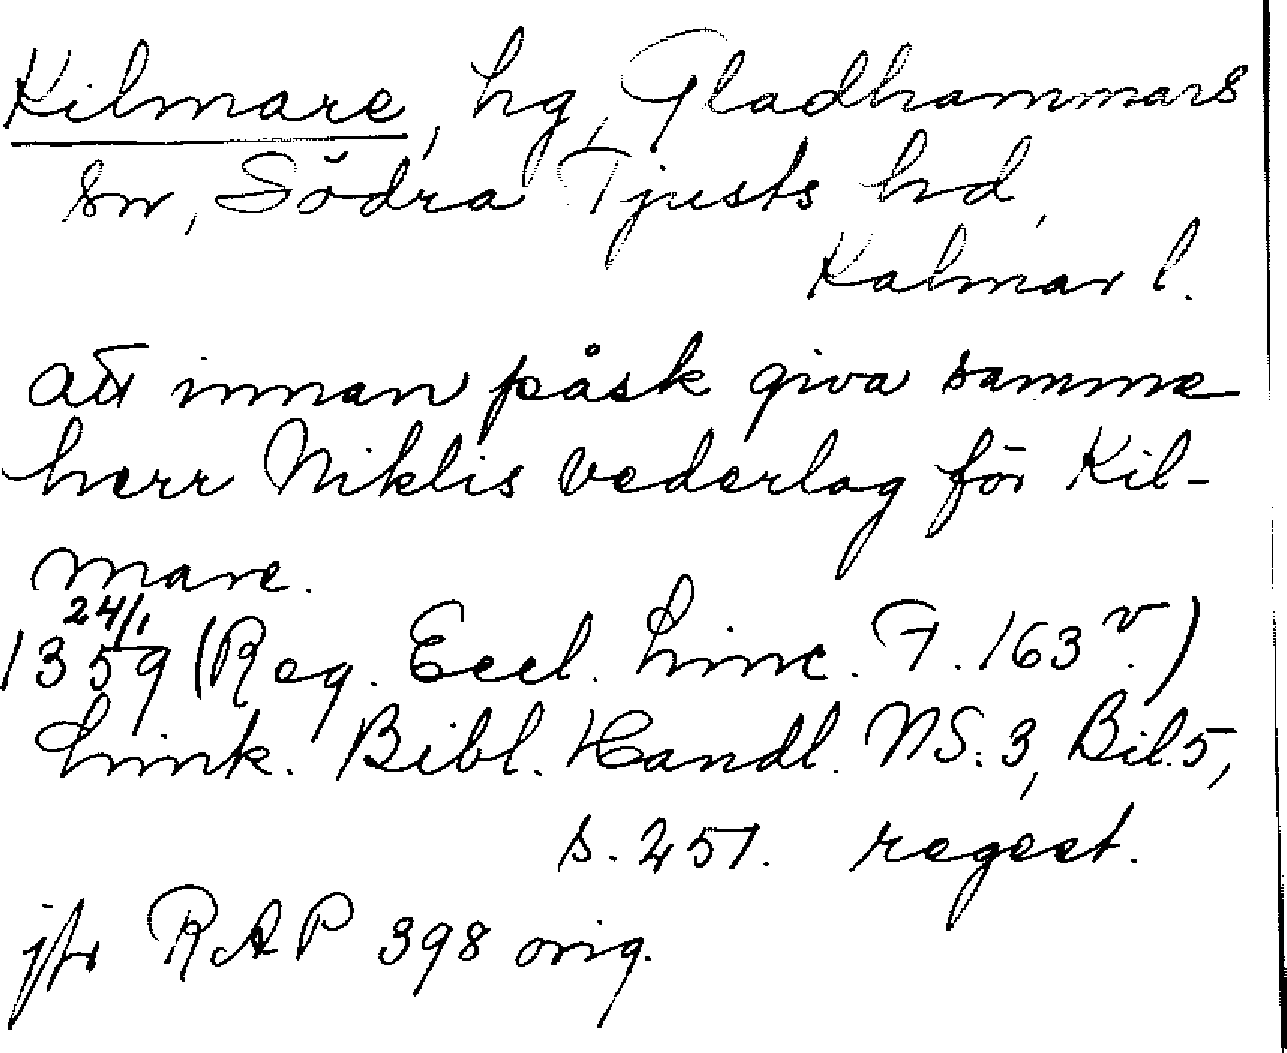 Kilmare, hg, Gladhammars
sn, Södra Tjusts hd,
Kalmar l.
att innan påsk giva samme
herr Niklis vederlag för Kil-
mare.
24/1
1359 (Reg. Eccl. Linc. F. 163 v.)
Link. Bibl. Handl. NS. 3, Bil. 5,
s. 251. regest.
jfr RAP 398 orig.